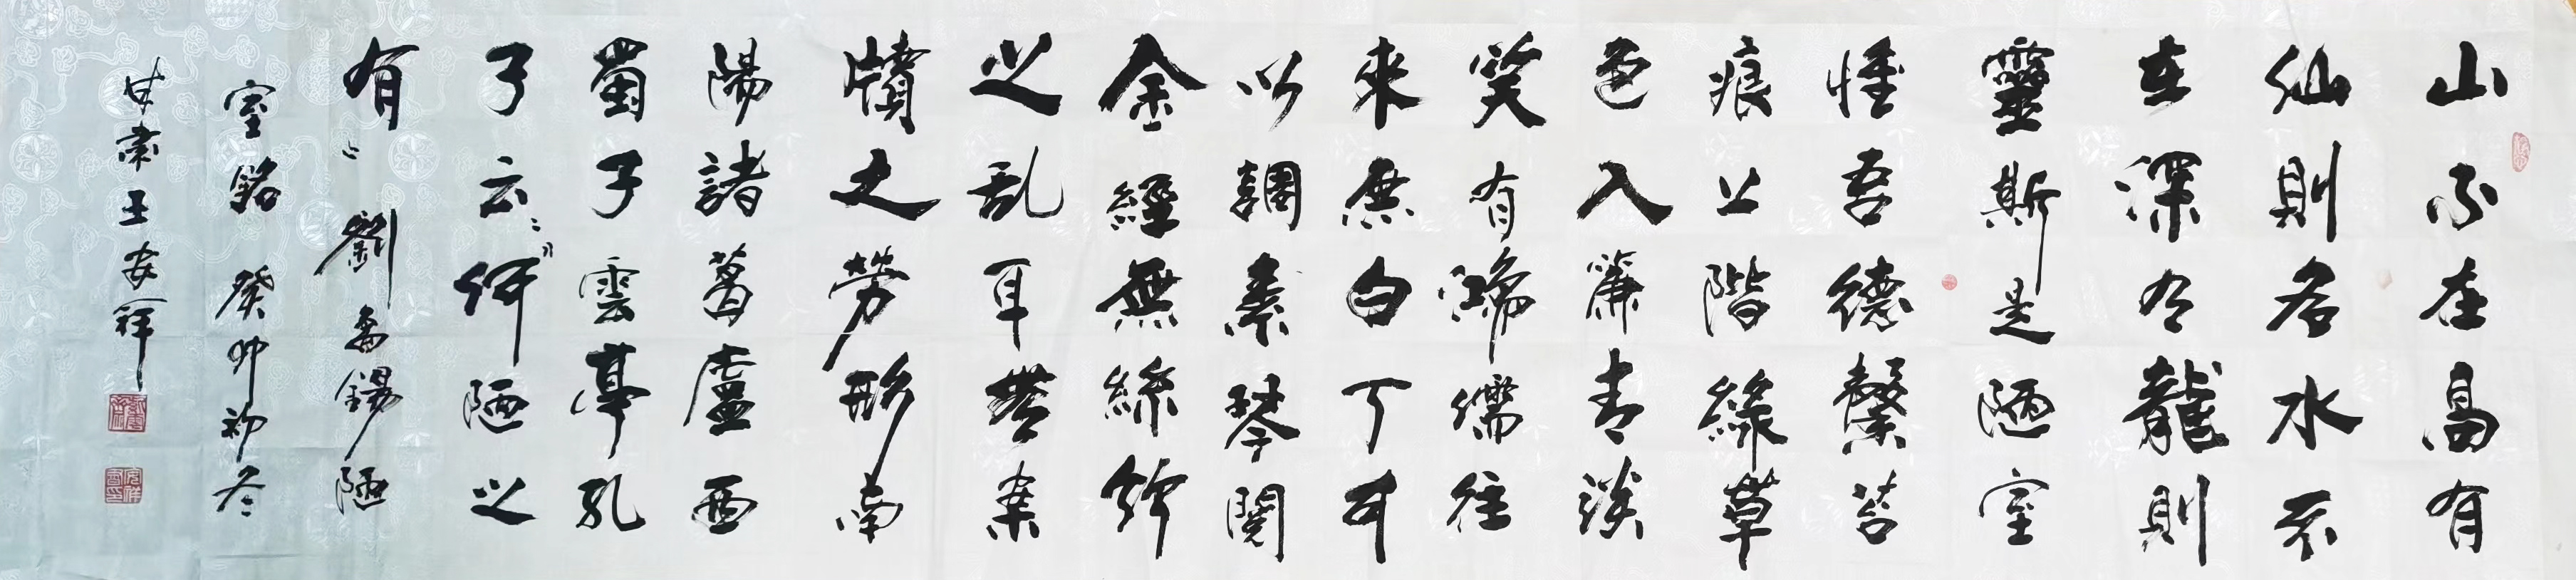 山不在高有
仙則名水不
在深有龍則
靈斯是陋室
惟吾德馨苔
痕上階綠草
色入簾青談
笑有鴻儒往
來無白丁可
以調素琴閱
金經無絲竹
之乱耳無案
牘之勞形南
陽諸葛廬西
蜀子雲亭孔
子云:"何陋之
有" 劉禹錫陋
室銘 癸卯初冬
甘肅王安祥